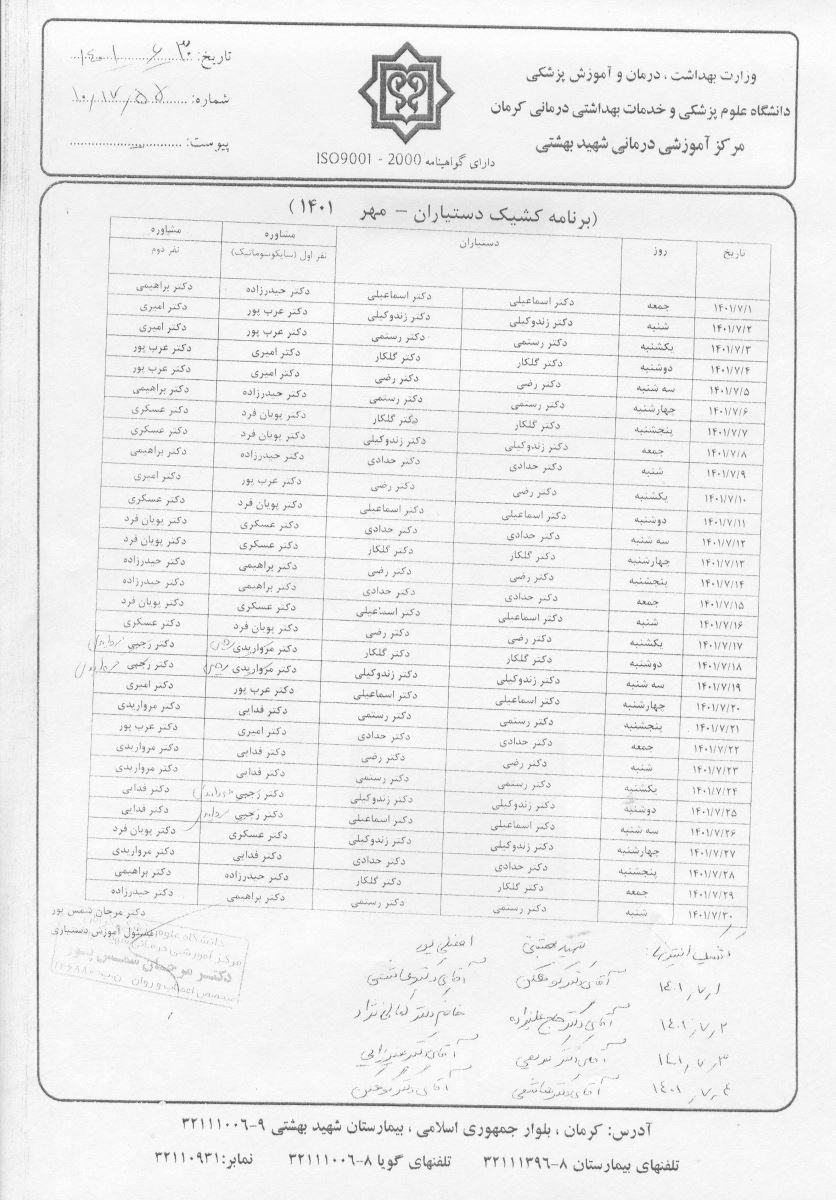 وزارت بهداشت، درمان و آموزش پزشکی
دانشگاه علوم پزشکی و خدمات بهداشتی درمانی کرمان
مرکز آموزشی درمانی شهید بهشتی
دارای گواهینامه ISO9001 - 2000
تاریخ: ۱۴۰۱/۶/۳۰
شماره: ۱۰/۱۷/۵۵
پیوست:
(برنامه کشیک دستیاران – مهر ۱۴۰۱)
تاریخ روز دستیاران مشاوره نفر اول (سایکوسوماتیک) مشاوره نفر دوم
۱۴۰۱/۷/۱ جمعه دکتر اسماعیلی دکتر اسماعیلی دکتر حیدرزاده دکتر براهیمی
۱۴۰۱/۷/۲ شنبه دکتر زندوکیلی دکتر زندوکیلی دکتر عرب پور دکتر امیری
۱۴۰۱/۷/۳ یکشنبه دکتر رستمی دکتر رستمی دکتر عرب پور دکتر امیری
۱۴۰۱/۷/۴ دوشنبه دکتر گلکار دکتر گلکار دکتر امیری دکتر عرب پور
۱۴۰۱/۷/۵ سه شنبه دکتر رضی دکتر رضی دکتر امیری دکتر عرب پور
۱۴۰۱/۷/۶ چهارشنبه دکتر رستمی دکتر رستمی دکتر حیدرزاده دکتر براهیمی
۱۴۰۱/۷/۷ پنجشنبه دکتر گلکار دکتر گلکار دکتر پویان فرد دکتر عسکری
۱۴۰۱/۷/۸ جمعه دکتر زندوکیلی دکتر زندوکیلی دکتر پویان فرد دکتر عسکری
۱۴۰۱/۷/۹ شنبه دکتر حدادی دکتر حدادی دکتر حیدرزاده دکتر براهیمی
۱۴۰۱/۷/۱۰ یکشنبه دکتر رضی دکتر رضی دکتر عرب پور دکتر امیری
۱۴۰۱/۷/۱۱ دوشنبه دکتر اسماعیلی دکتر اسماعیلی دکتر پویان فرد دکتر عسکری
۱۴۰۱/۷/۱۲ سه شنبه دکتر حدادی دکتر حدادی دکتر عسکری دکتر پویان فرد
۱۴۰۱/۷/۱۳ چهارشنبه دکتر گلکار دکتر گلکار دکتر عسکری دکتر پویان فرد
۱۴۰۱/۷/۱۴ پنجشنبه دکتر رضی دکتر رضی دکتر براهیمی دکتر حیدرزاده
۱۴۰۱/۷/۱۵ جمعه دکتر حدادی دکتر حدادی دکتر براهیمی دکتر حیدرزاده
۱۴۰۱/۷/۱۶ شنبه دکتر اسماعیلی دکتر اسماعیلی دکتر عسکری دکتر پویان فرد
۱۴۰۱/۷/۱۷ یکشنبه دکتر رضی دکتر رضی دکتر پویان فرد دکتر عسکری
۱۴۰۱/۷/۱۸ دوشنبه دکتر گلکار دکتر گلکار دکتر مرواریدی دکتر رجبی
۱۴۰۱/۷/۱۹ سه شنبه دکتر زندوکیلی دکتر زندوکیلی دکتر مرواریدی دکتر رجبی
۱۴۰۱/۷/۲۰ چهارشنبه دکتر اسماعیلی دکتر اسماعیلی دکتر عرب پور دکتر امیری
۱۴۰۱/۷/۲۱ پنجشنبه دکتر رستمی دکتر رستمی دکتر فدایی دکتر مرواریدی
۱۴۰۱/۷/۲۲ جمعه دکتر حدادی دکتر حدادی دکتر امیری دکتر عرب پور
۱۴۰۱/۷/۲۳ شنبه دکتر رضی دکتر رضی دکتر فدایی دکتر مرواریدی
۱۴۰۱/۷/۲۴ یکشنبه دکتر رستمی دکتر رستمی دکتر فدایی دکتر مرواریدی
۱۴۰۱/۷/۲۵ دوشنبه دکتر زندوکیلی دکتر زندوکیلی دکتر رجبی دکتر فدایی
۱۴۰۱/۷/۲۶ سه شنبه دکتر اسماعیلی دکتر اسماعیلی دکتر رجبی دکتر فدایی
۱۴۰۱/۷/۲۷ چهارشنبه دکتر زندوکیلی دکتر زندوکیلی دکتر عسکری دکتر پویان فرد
۱۴۰۱/۷/۲۸ پنجشنبه دکتر حدادی دکتر حدادی دکتر فدایی دکتر مرواریدی
۱۴۰۱/۷/۲۹ جمعه دکتر گلکار دکتر گلکار دکتر حیدرزاده دکتر براهیمی
۱۴۰۱/۷/۳۰ شنبه دکتر رستمی دکتر رستمی دکتر براهیمی دکتر حیدرزاده
دکتر مرجان شمس پور
مسئول آموزش دستیاری
دانشگاه علوم
مرکز آموزشی درمانی
دکتر مرجان شمس پور
متخصص اعصاب و روان
شهید بهشتی افضلی پور
۱۴۰۱/۷/۱ آقای دکتر آقای دکتر هاشمی
۱۴۰۱/۷/۲ آقای دکتر حاج علیزاده خانم دکتر کمالی نژاد
۱۴۰۱/۷/۳ آقای دکتر کریمی آقای دکتر میرزایی
۱۴۰۱/۷/۴ آقای دکتر هاشمی آقای دکتر
آدرس: کرمان ، بلوار جمهوری اسلامی ، بیمارستان شهید بهشتی ۹-۳۲۱۱۱۰۰۶
تلفنهای بیمارستان ۸-۳۲۱۱۱۳۹۶ تلفنهای گویا ۸-۳۲۱۱۱۰۰۶ نمابر:۳۲۱۱۰۹۳۱